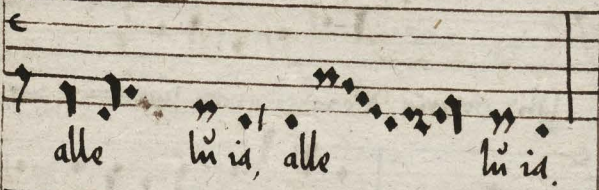 alle lu ia, alle lu ia.